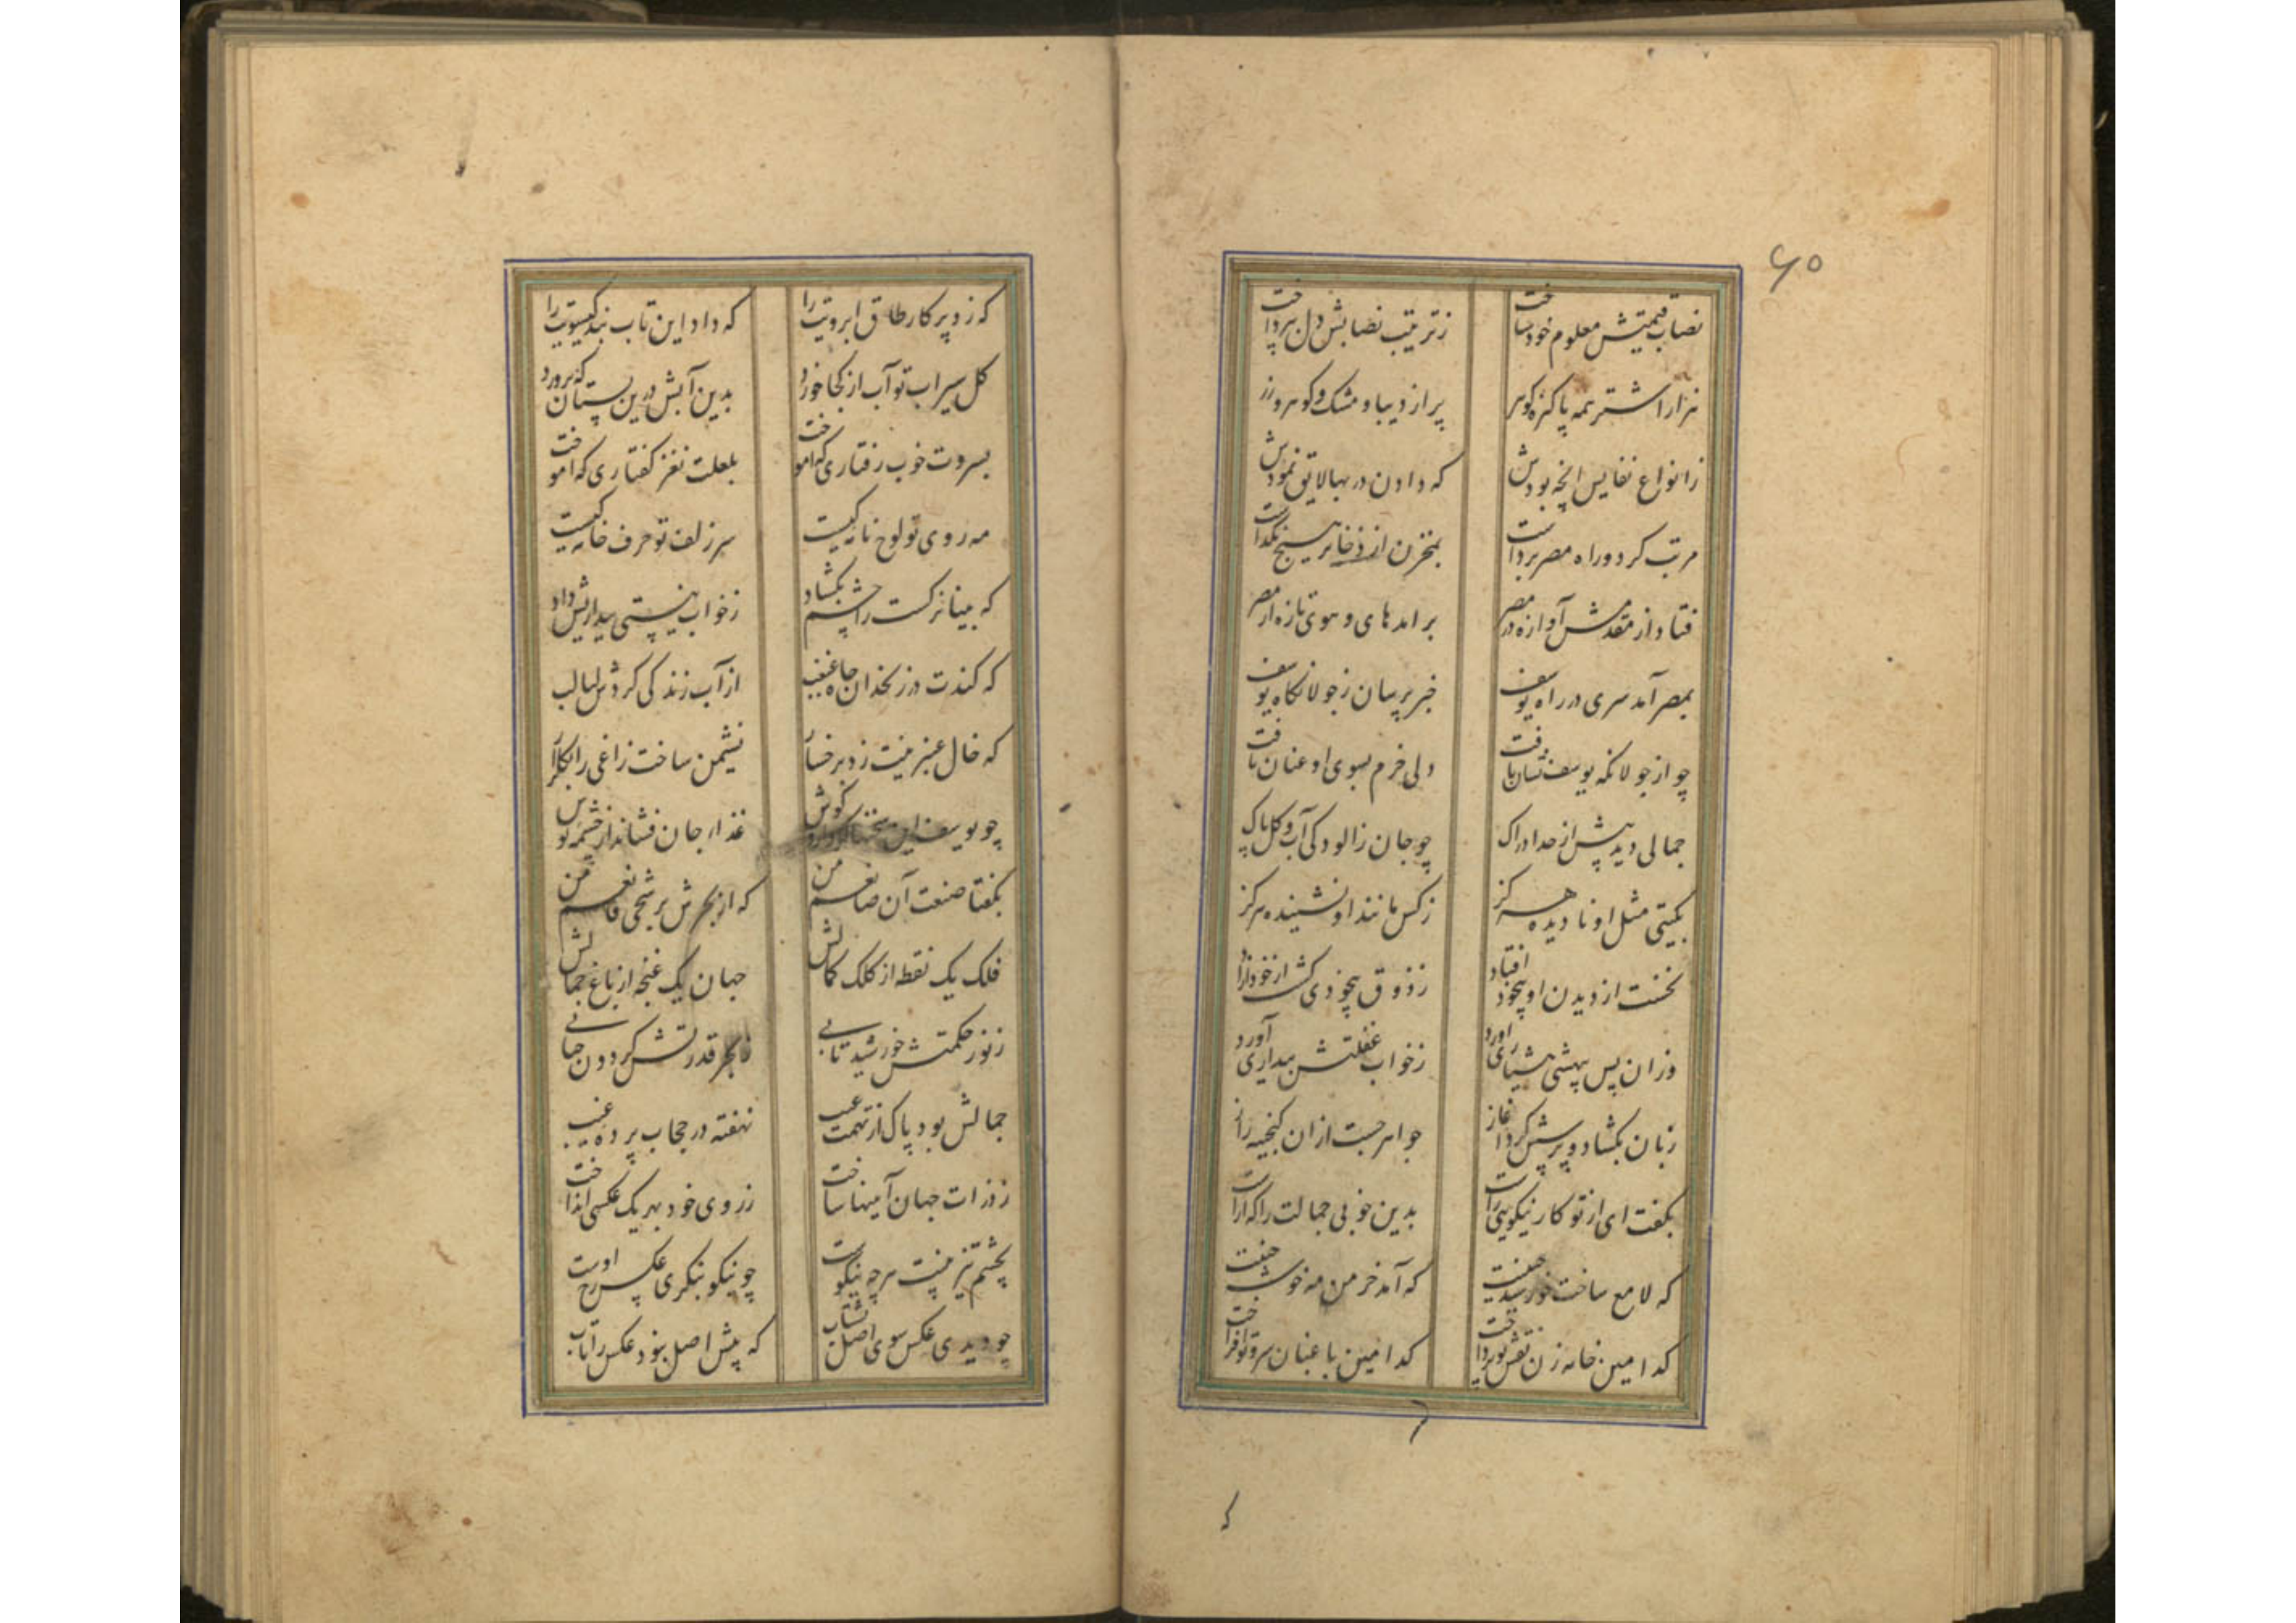 ۶۵
نصاب قیمتش معلوم خود ساخت زترتیب نصابش دل بپرداخت
هزار اشتر همه پاکیزه کوهر پر از دیبا و مشک و کوهر و زر
ز انواع نفایس انچه بودش که دادن در بها لایق نمودش
مرتب کرد و راه مصر برداشت بمخزن از ذخایر هیچ نگذاشت
فتاد از مقدمش آوازه در مصر برامد های و هوی تازه از مصر
بمصر آمد سری در راه یوسف خبرپرسان ز جولانکاه یوسف
چو از جولانکه یوسف نشان یافت دلی خرم بسوی او عنان تافت
جمالی دید بیش از حد ادراک چو جان ز الودکی آب و کل پاک
بکیتی مثل او نادیده هرکز ز کس مانند او نشنیده هرکز
نخست از دیدن او بیخود افتاد ز ذوق بیخودی کشت از خود ازاد
وزان پس بیهشی هشیاری اورد ز خواب غفلتش بیداری آورد
زبان بکشاد و پرسش کرد اغاز جواهر جست ازان کنجینه راز
بکفت ای از تو کار نیکویی راست بدین خوبی جمالت را که اراست
که لامع ساخت خورشید جبینت که آمد خرمن مه خوشه چینت
کدامین خامه زن نقش تو پرداخت کدامین باغبان سرو تو افراخت
که
که زد پرکار طاق ابرویت را که داد این تاب بند کیسویت را
کل سیراب تو آب از کجا خورد بدین آبش درین بستان که پرورد
بسروت خوب رفتاری که اموخت بلعلت نغز کفتاری که اموخت
مه روی تو لوح نامه کیست سر زلف تو حرف خامه کیست
که بینا نرکست را چشم بکشاد ز خواب نیستی بیداریش داد
که کندت در زنخدان چاه غبغب از آب زندکی کردش لبالب
که خال عنبرینت زد برخسار نشیمن ساخت زاغی را بکلزار
چو یوسف این سخنها کرد در کوش غذاء جان فشاند از چشمه نوش
بکفتا صنعت آن صانعم من که از بحرش برشحی قانعم من
فلک یک نقطه از کلک کمالش جهان یک غنچه از باغ جمالش
ز نور حکمتش خورشید تابی ز بحر قدرتش کردون حبابی
جمالش بود پاک از تهمت عیب نهفته در حجاب پرده غیب
ز ذرات جهان آیینها ساخت ز روی خود بهر یک عکسی انداخت
بچشم تیزبینت هرچه نیکوست چو نیکو بنکری عکس رخ اوست
چو دیدی عکس سوی اصل بشتاب که پیش اصل نبود عکس را تاب